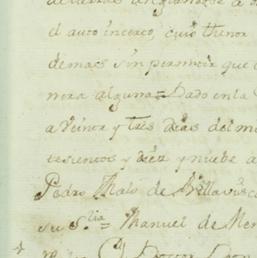 el auto incerto, cuio thenor
demas sin permitir que
nera alguna = Dado en la
a veinte y tres dias del me
tesientos y diez y nuebe a
Pedro Malo de Villavis
su S.ria = Manuel de Mer